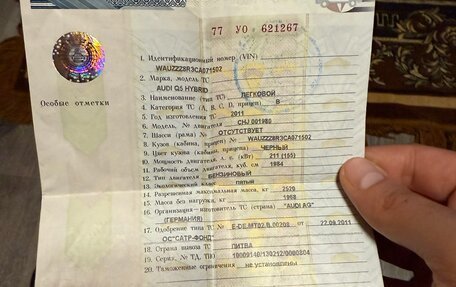 77 УО 621267
1. Идентификационный номер (VIN)
WAUZZZ8R3CA071502
2. Марка, модель ТС
AUDI Q5 HYBRID
3. Наименование (тип ТС) ЛЕГКОВОЙ
4. Категория ТС (А, В, С, D, прицеп) B
Особые отметки
5. Год изготовления ТС 2011
6. Модель, № двигателя CHJ 001980
7. Шасси (рама) № ОТСУТСТВУЕТ
8. Кузов (кабина, прицеп) № WAUZZZ8R3CA071502
9. Цвет кузова (кабины, прицепа) ЧЕРНЫЙ
10. Мощность двигателя, л. с. (кВт) 211 (155)
11. Рабочий объем двигателя, куб. см 1984
12. Тип двигателя БЕНЗИНОВЫЙ
13. Экологический класс ПЯТЫЙ
14. Разрешенная максимальная масса, кг 2520
15. Масса без нагрузки, кг 1968
16. Организация—изготовитель ТС (страна) "AUDI AG"
(ГЕРМАНИЯ)
17. Одобрение типа ТС № E-DE.MT02.B.00208 от 22.09.2011
ОС"САТР-ФОНД"
18. Страна вывоза ТС ЛИТВА
19. Серия, № ТД, ТПО 10009140/130212/0000804
20. Таможенные ограничения не установлены